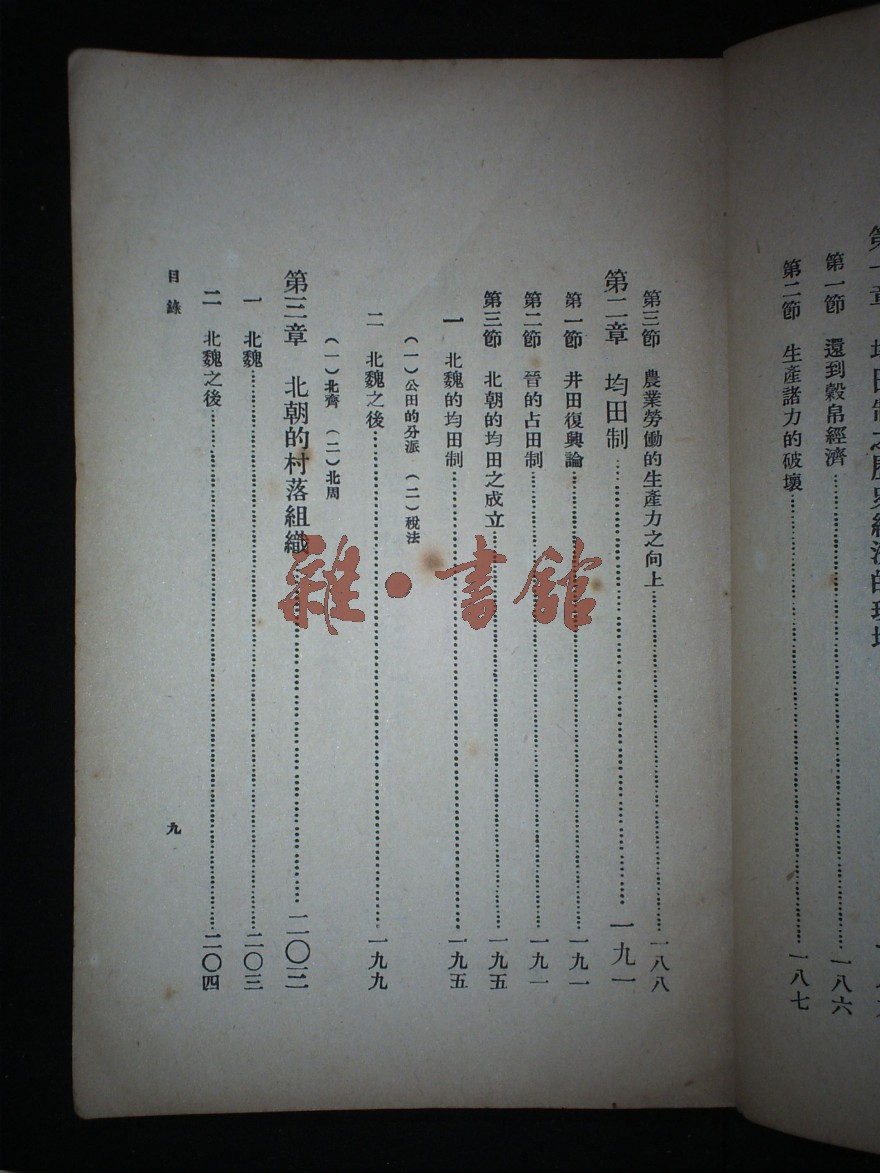 均田制之
第一節 還到穀帛經濟……一八六
第二節 生產諸力的破壞……一八七
第三節 農業勞働的生產力之向上……一八八
第二章 均田制……一九一
第一節 井田復興論……一九一
第二節 晉的占田制……一九一
第三節 北朝的均田之成立……一九五
一 北魏的均田制……一九五
(一)公田的分派 (二)稅法
二 北魏之後……一九九
(一)北齊 (二)北周
第三章 北朝的村落組織……二〇三
一 北魏……二〇三
二 北魏之後……二〇四
目錄
九
雜·書館